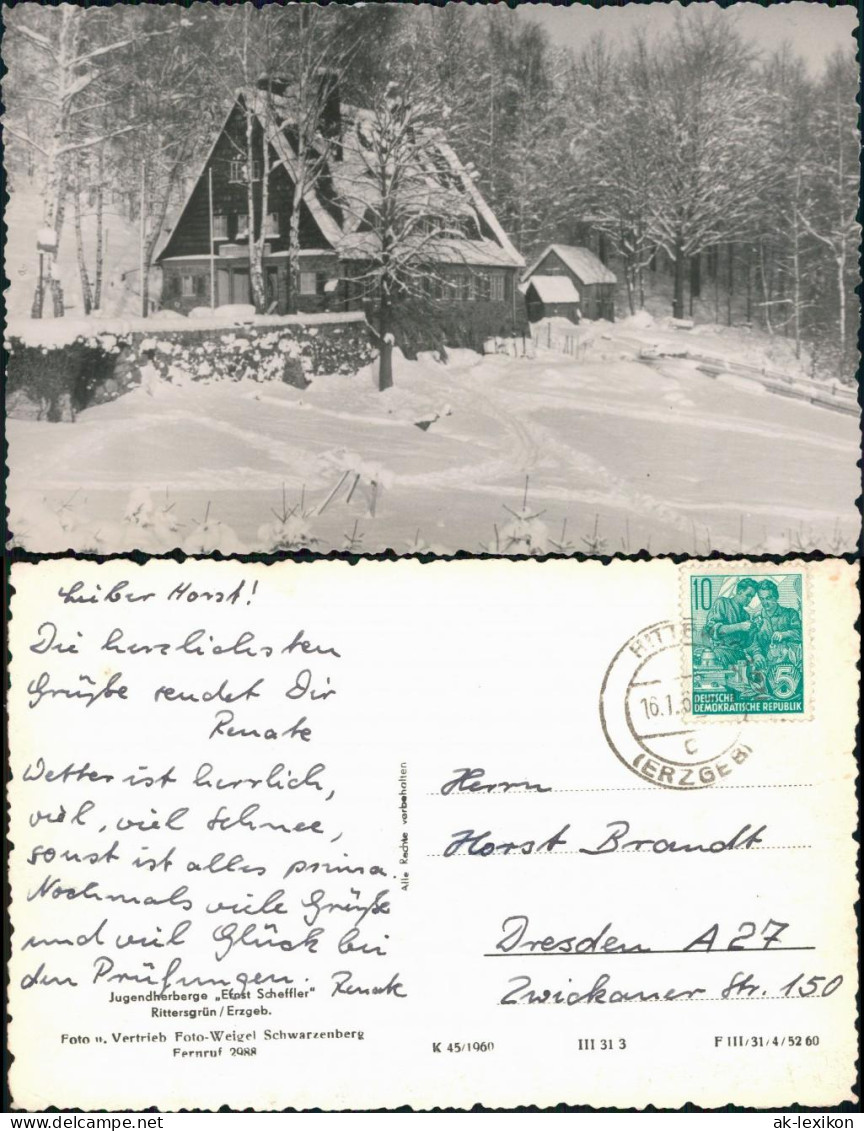 Lieber Horst!
Die herzlichsten
Grüße sendet Dir
Renate
Wetter ist herrlich,
viel, viel Schnee,
sonst ist alles prima.
Nochmals viele Grüße
und viel Glück bei
den Prüfungen. Renate
Jugendherberge „Ernst Scheffler"
Rittersgrün/Erzgeb.
Foto u. Vertrieb Foto-Weigel Schwarzenberg
Fernruf 2988
Alle Rechte vorbehalten
K 45/1960
III 31 3
F III/31/4/52 60
10
DEUTSCHE
DEMOKRATISCHE REPUBLIK
5
16.1.6
c
(ERZGEB)
Herrn
Horst Brandt
Dresden A 27
Zwickauer Str. 150
www.ansichtskarten-lexikon.de
ak-lexikon